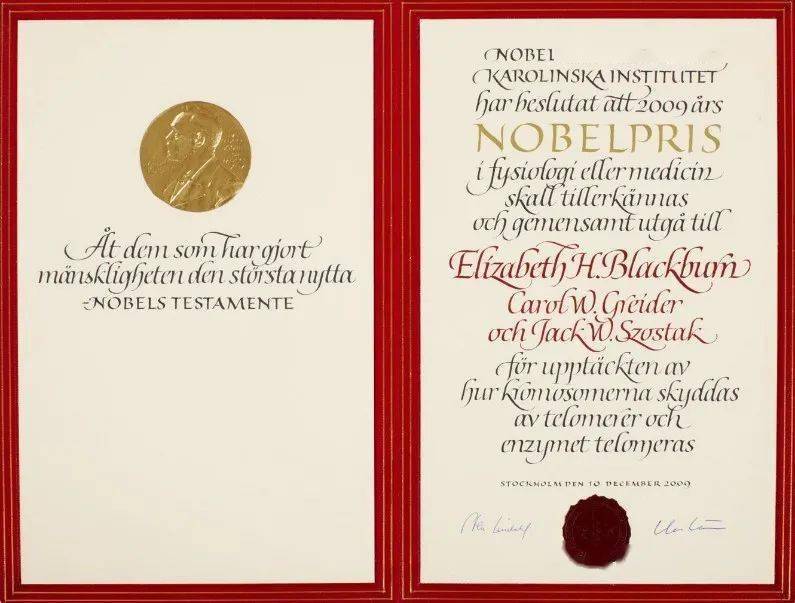 Åt dem som har gjort
mänskligheten den största nytta
-NOBELS TESTAMENTE
NOBEL
KAROLINSKA INSTITUTET
har beslutat att 2009 års
NOBELPRIS
i fysiologi eller medicin
skall tillerkännas
och gemensamt utgå till
Elizabeth H. Blackburn
Carol W. Greider
och Jack W. Szostak
för upptäckten av
hur kromosomerna skyddas
av telomerer och
enzymet telomeras
STOCKHOLM DEN 10 DECEMBER 2009